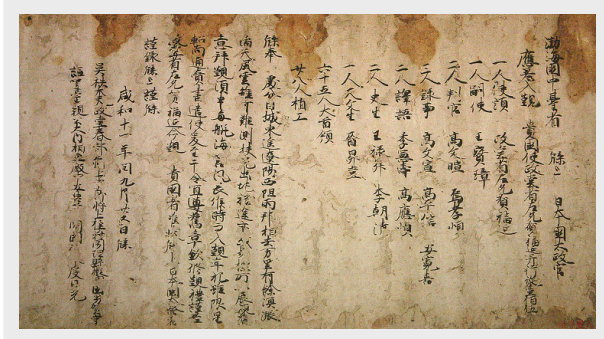 渤海國中臺省 牒上 日本國太政官
應差入覲 貴國使政堂省左允賀福延并行從壹佰伍人
一人使頭 政堂省左允賀福延
一人嗣使 王寶璋
二人判官 高文暄 烏孝順
三人錄事 高文宣 高平信 安寬喜
二人譯語 李憲壽 高應順
二人史生 王祿昇 李朝清
一人天文生 晉昇堂
六十五人大首領
廿八人梢工
牒奉 處分日域東遙遼陽西阻兩邦相去萬里有餘溟漲
滔天風雲雖可難測扶光出地程途亦或易標所以展親舊
意拜覲須申每航海以占風長候時而入覲年紀雖限星
軺尚通賫書遣使爰至于今宜遵舊章欽修覲禮謹差
政堂省左允賀福延令覲 貴國者准狀牒上日本國太政官者
謹錄牒上謹牒
咸和十一年閏九月廿五日牒